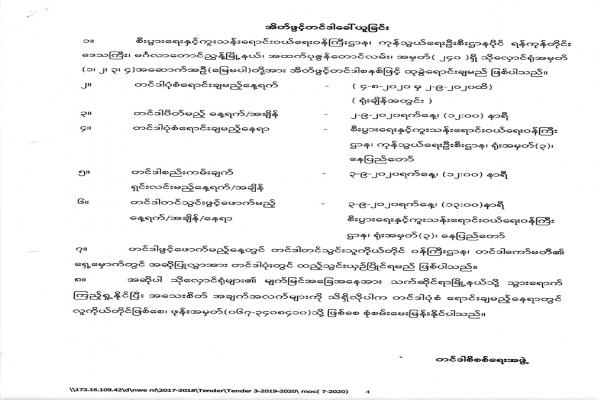 အိတ်ဖွင့်တင်ဒါခေါ်ယူခြင်း
၁။ စီးပွားရေးနှင့်ကူးသန်းရောင်းဝယ်ရေးဝန်ကြီးဌာန၊ ကုန်သွယ်ရေးဦးစီးဌာနပိုင် ရန်ကုန်တိုင်း
ဒေသကြီး၊ မင်္ဂလာတောင်ညွန့်မြို့နယ်၊ အထက်ပုဇွန်တောင်လမ်း၊ အမှတ် (၂၄၀ )ရှိ သိုလှောင်ရုံအမှတ်
(၁၊ ၂၊ ၃၊ ၄)အဆောက်အဦ(မြေမပါ)တို့အား အိတ်ဖွင့်တင်ဒါစနစ်ဖြင့် ထုခွဲရောင်းချမည် ဖြစ်ပါသည်။
၂။ တင်ဒါပုံစံရောင်းချမည့်နေ့ရက် - ( ၄-၈-၂၀၂၀ မှ ၂-၉-၂၀၂၀ထိ)
( ရုံးချိန်အတွင်း )
၃။ တင်ဒါပိတ်မည့် နေ့ရက်/အချိန် - ၂-၉-၂၀၂၀ရက်နေ့၊ (၁၂:၀၀) နာရီ
၄။ တင်ဒါပုံစံရောင်းချမည့်နေရာ - စီးပွားရေးနှင့်ကူးသန်းရောင်းဝယ်ရေးဝန်ကြီး
ဌာန၊ ကုန်သွယ်ရေးဦးစီးဌာန၊ ရုံးအမှတ်(၃)၊
နေပြည်တော်
၅။ တင်ဒါစည်းကမ်းချက် - ၃-၉-၂၀၂၀ရက်နေ့၊ (၁၂:၀၀) နာရီ
ရှင်းလင်းမည့်နေ့ရက်/အချိန်
၆။ တင်ဒါတင်သွင်းဖွင့်ဖောက်မည့် - ၃-၉-၂၀၂၀ရက်နေ့၊ (၁၃:၀၀)နာရီ
နေ့ရက်/အချိန်/နေရာ စီးပွားရေးနှင့်ကူးသန်းရောင်းဝယ်ရေးဝန်ကြီး
ဌာန၊ ရုံးအမှတ်(၃)၊ နေပြည်တော်
၇။ တင်ဒါဖွင့်ဖောက်မည့်နေ့တွင် တင်ဒါတင်သွင်းသူကိုယ်တိုင် ဝန်ကြီးဌာန၊ တင်ဒါကော်မတီ၏
ရှေ့မှောက်တွင် အဆိုပြုလွှာအား တင်ဒါပုံးတွင် ထည့်သွင်းယှဉ်ပြိုင်ရမည် ဖြစ်ပါသည်။
၈။ အဆိုပါ သိုလှောင်ရုံများ၏ မျက်မြင်အခြေအနေအား သက်ဆိုင်ရာမြို့နယ်သို့ သွားရောက်
ကြည့်ရှုနိုင်ပြီး၊ အသေးစိတ် အချက်အလက်များကို သိရှိလိုပါက တင်ဒါပုံစံ ရောင်းချမည့်နေရာတွင်
လူကိုယ်တိုင်ဖြစ်စေ၊ ဖုန်းအမှတ်(၀၆၇-၃၄၀၈၄၁၀)သို့ ဖြစ်စေ စုံစမ်းမေးမြန်းနိုင်ပါသည်။
တင်ဒါစိစစ်ရေးအဖွဲ့
\\172.16.109.42\d\nwe ni\2017-2018\Tender\Tender 3-2019-2020\ moc( 7-2020) 4